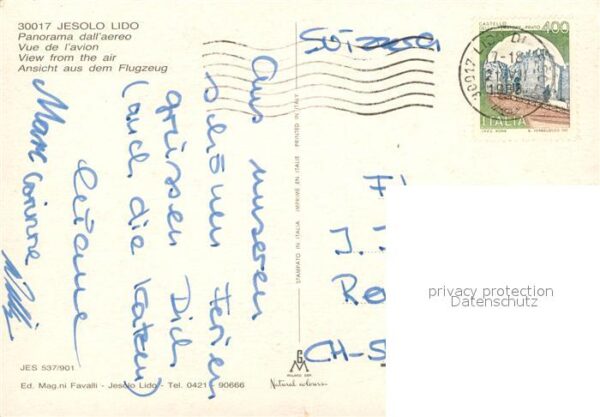 30017 JESOLO LIDO
Panorama dall'aereo
Vue de l'avion
View from the air
Ansicht aus dem Flugzeug
Aus unseren
schönen Ferien
grüssen Dich
(auch die Katzen)
Marc Corinne
Svizzera
CASTELLO
400
ITALIA
30017
17-18
STAMPATO IN ITALIA IMPRIMÉ EN ITALIE PRINTED IN ITALY
J.
CH-
privacy protection
Datenschutz
JES 537/901
Ed. Mag.ni Favalli - Jesolo Lido - Tel. 0421 - 90666
Natural colours